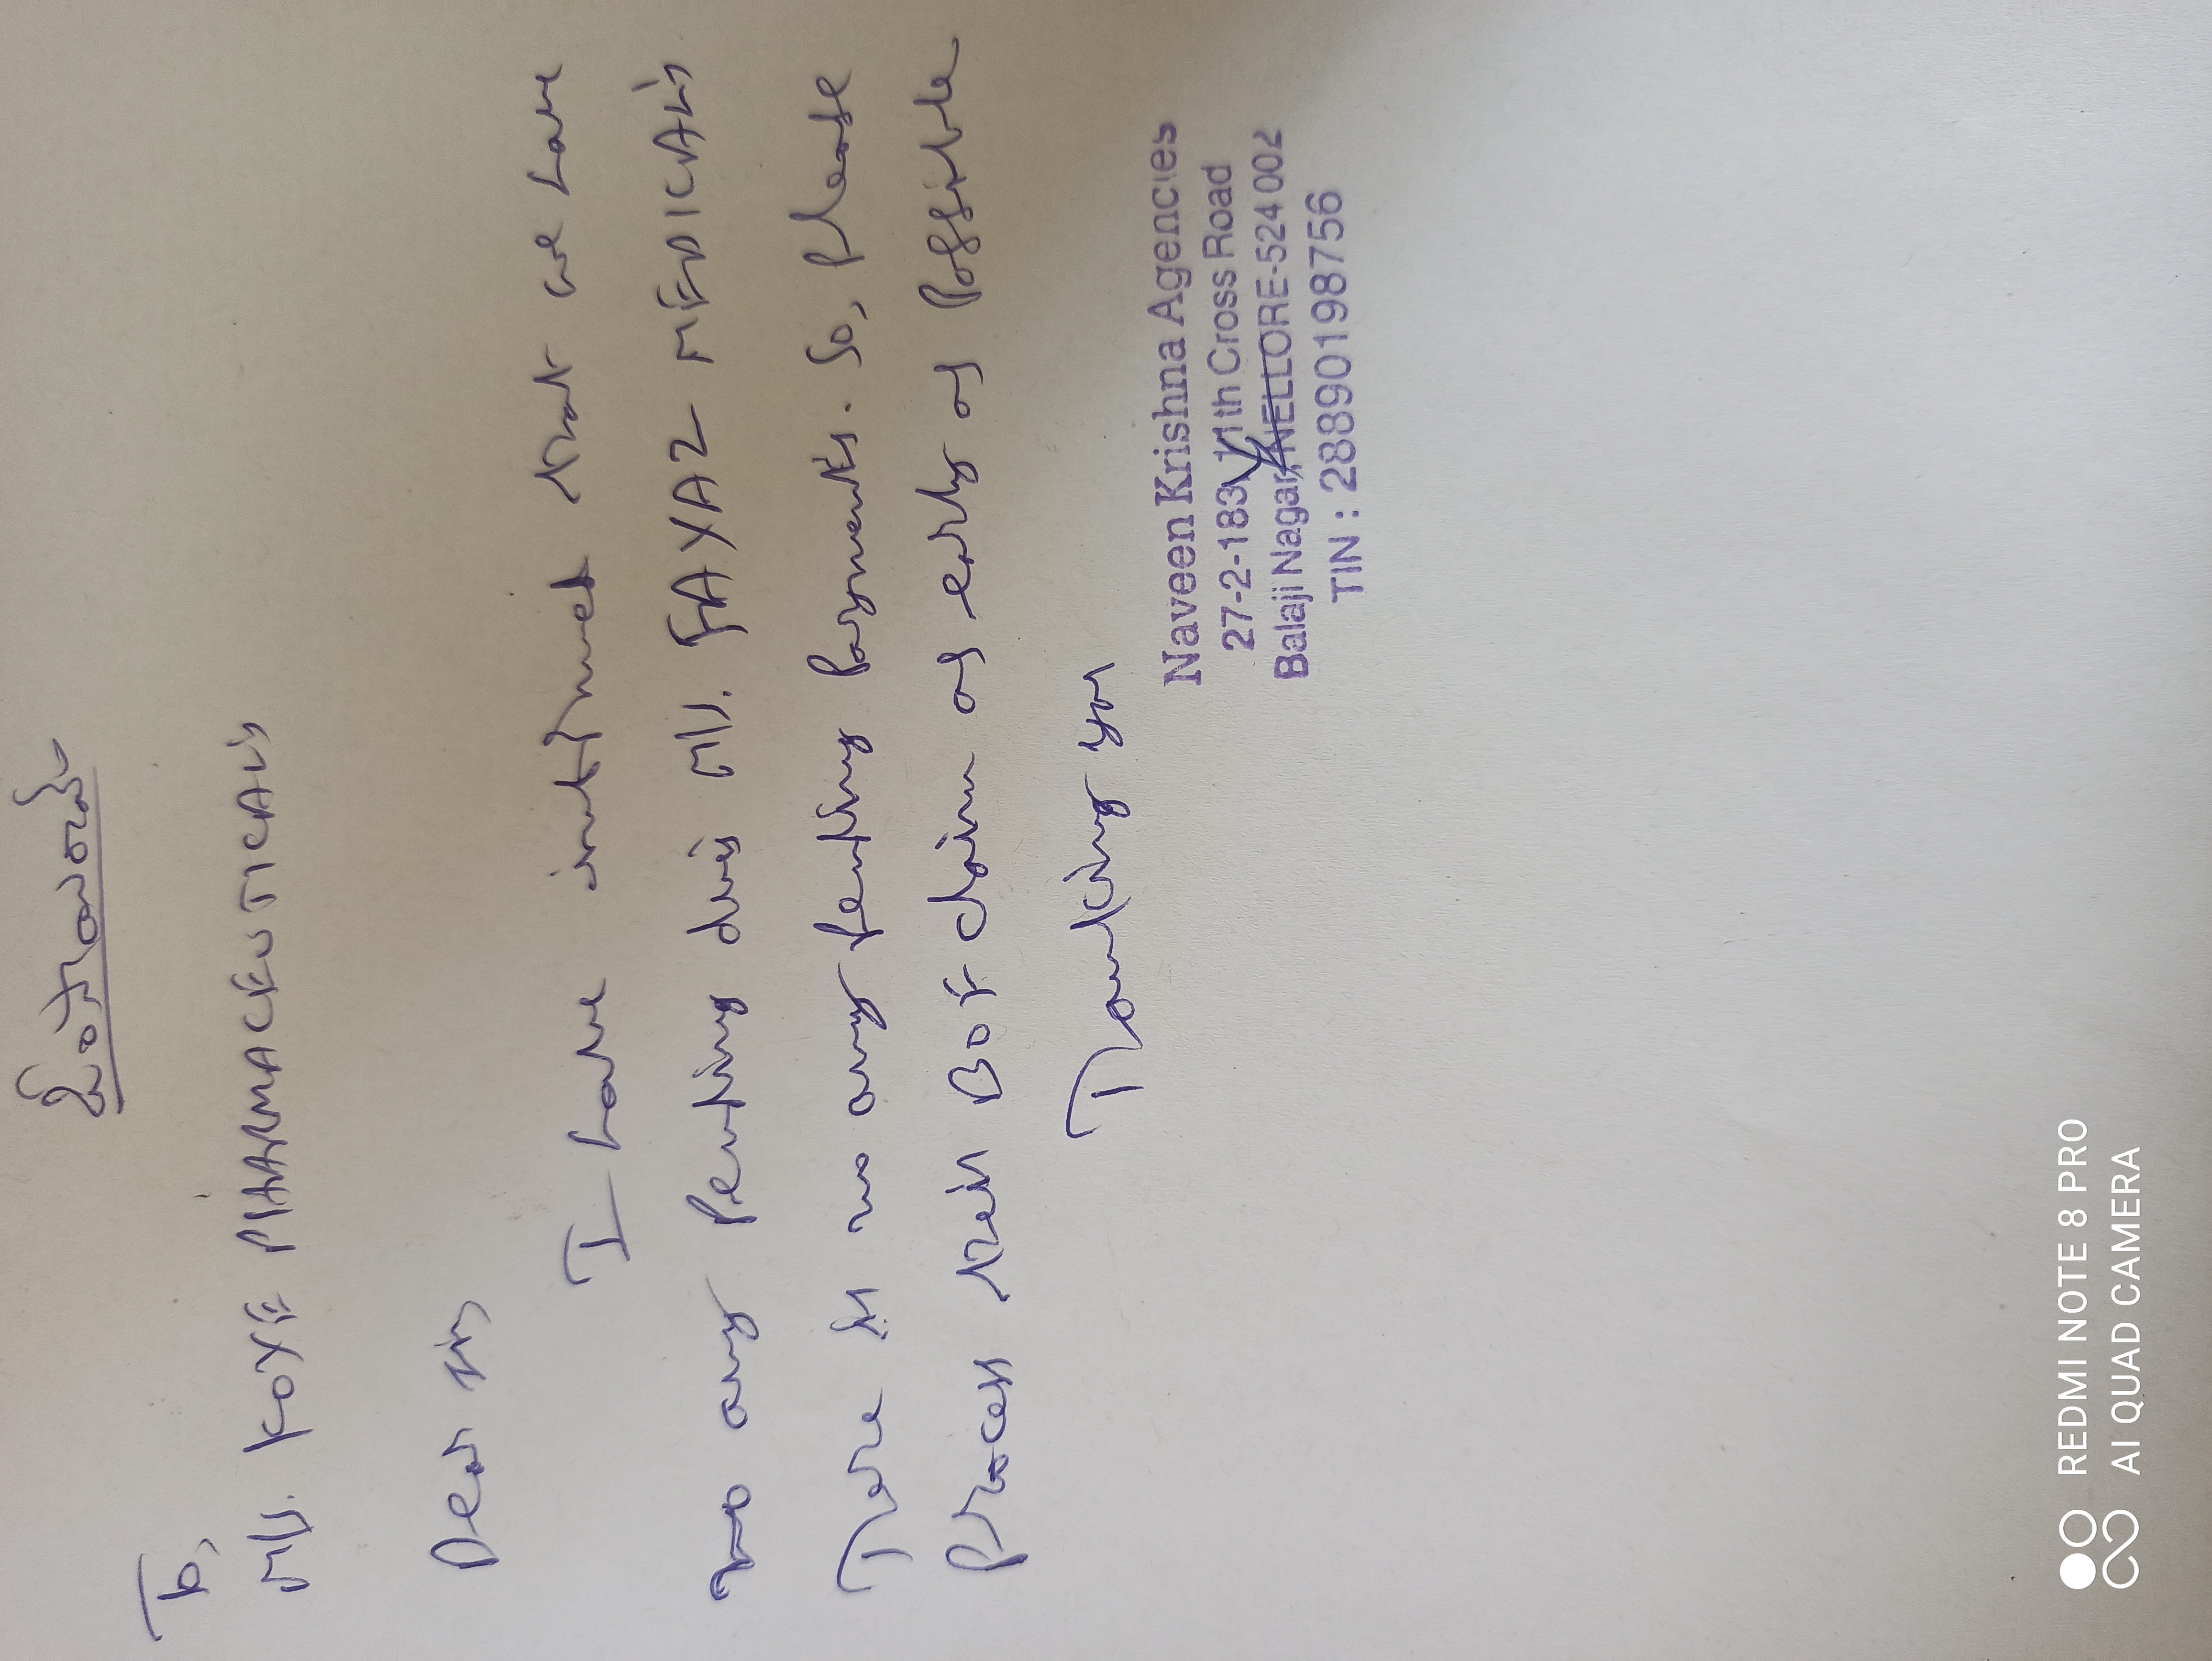 To,
M/s. KOYE PHARMACEUTICALS
Dear sir,
I have informed that we have
no any Pending dues M/s. FAYAZ MEDICALS
There is no any Pending Payments. So, Please
Process their BOE claim as early as Possible
Thanking you
Naveen Krishna Agencies
27-2-183, 11th Cross Road
Balaji Nagar, NELLORE-524 002
TIN : 28890198756
REDMI NOTE 8 PRO
AI QUAD CAMERA